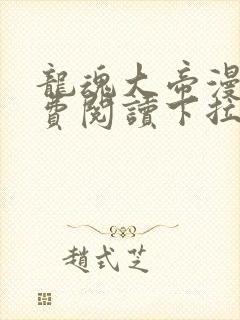 龍魂大帝漫
費閱讀下拉
趙式芝